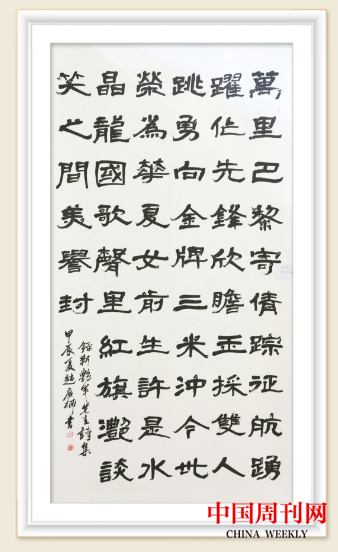 萬里巴黎寄倩踪征航踴
躍佔先鋒欣瞻五採雙人
跳勇向金牌三米沖今世
榮為華夏女前生許是水
晶龍國歌聲里紅旗灔談
笑之間美譽封
先生詩集
甲辰夏趙書
中国周刊网
CHINA WEEKLY